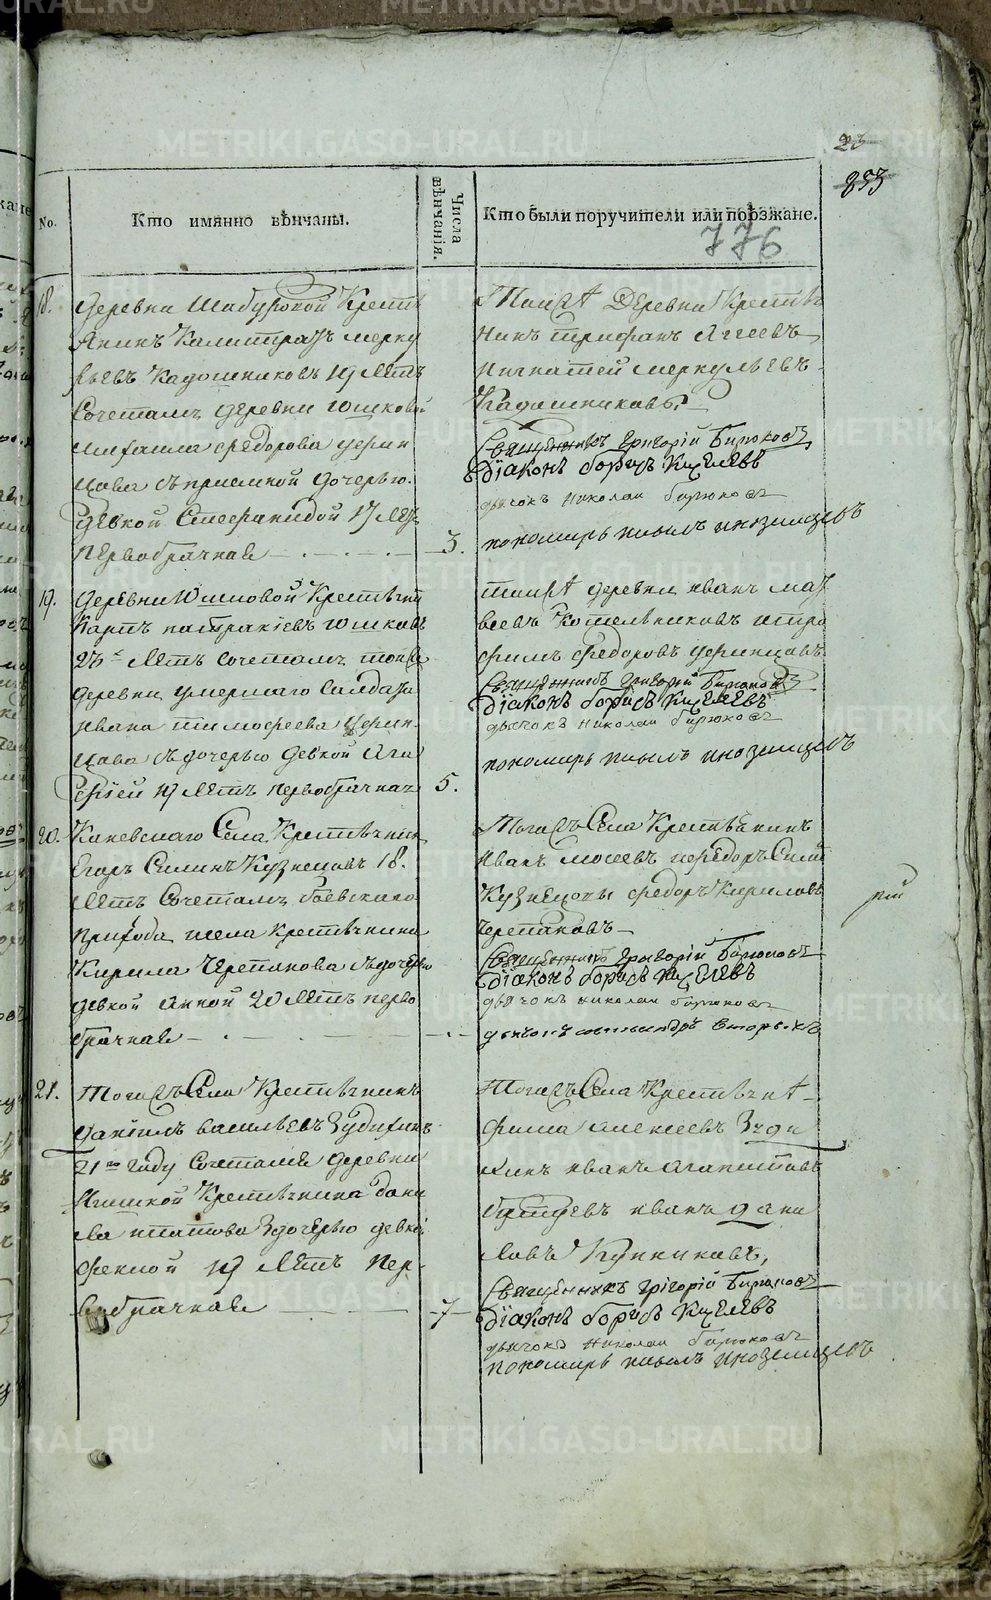 23
853
No.
Кто имянно вѣнчаны.
Числа вѣнчанія.
Кто были поручители или поѣзжане.
776
18.
Деревни Шабуровой Кресть
янинъ Калистратъ мерку
льевъ Кадошниковъ 19 лѣтъ
Сочетанъ деревни Юшковой
федорова
цова съ приемной дочерью
девкой Стефанидой 17 лѣтъ
первобрачная
3.
Деревни Кресть
никъ трифанъ Аггеевъ
Игнатей меркульевъ
Кадошниковъ
Священникъ Григорій Бирюковъ
Діаконъ борисъ Киселевъ
дьячокъ Николай Бирюковъ
пономарь иноземцевъ
19.
Деревни Юшковой Крестьянинъ
Карпъ патракіевъ Юшковъ
23 лѣтъ сочетанъ тоя
деревни умершаго Салдата
ивана тимофеева
цова съ дочерью девкой Ага
фіей 19 лѣтъ первобрачная
5.
деревни иванъ мат
веевъ Котельниковъ итро
фимъ федоровъ
Священникъ Григорій Бирюковъ
Діаконъ борисъ Киселевъ
дьячокъ Николай Бирюковъ
пономарь иноземцевъ
20.
Каневскаго Села Крестьянинъ
Егоръ Силинъ Кузнецовъ 18.
лѣтъ Сочетанъ боевскаго
прихода села крестьянина
Кирила Черепанова съ дочерью
девкой Анной 20 лѣтъ перво
брачная
Тогожъ Села Крестьянинъ
иванъ мосеевъ
Кузнецовы федоръ Кириловъ
Черепановъ
Священникъ Григорій Бирюковъ
Діаконъ борисъ Киселевъ
дьячокъ Николай Бирюковъ
21.
Тогожъ Села Крестьянинъ
даніилъ васильевъ Зудихинъ
21 году Сочетанъ деревни
Крестьянина дани
ла дочерью девкой
феклой 19 лѣтъ пер
вобрачная
7
Тогожъ Села Крестьяна
фома алексеевъ
иванъ агапитовъ
иванъ дани
ловъ
Священникъ Григорій Бирюковъ
Діаконъ борисъ Киселевъ
дьячокъ Николай Бирюковъ
пономарь иноземцевъ
METRIKI.GASO-URAL.RU